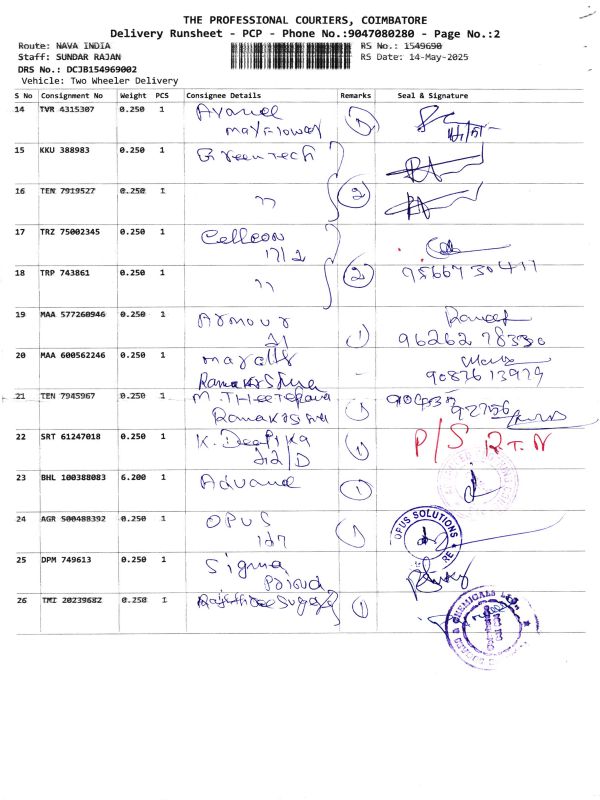 THE PROFESSIONAL COURIERS, COIMBATORE
Delivery Runsheet - PCP - Phone No.:9047080280 - Page No.:2
Route: NAVA INDIA RS No.: 1549690
Staff: SUNDAR RAJAN RS Date: 14-May-2025
DRS No.: DCJB154969002
Vehicle: Two Wheeler Delivery
S No Consignment No Weight PCS Consignee Details Remarks Seal & Signature
14 TVR 4315307 0.250 1 1
15 KKU 388983 0.250 1 Green Tech
16 TEN 7919527 0.250 1 " 2
17 TRZ 75002345 0.250 1 Cellcon
17/2
18 TRP 743861 0.250 1 " 2 95667 30411
19 MAA 577260946 0.250 1 Armour 1
96262 78330
20 MAA 600562246 0.250 1
Ramakrishna 9087613979
21 TEN 7945967 0.250 1 M. 1
Ramakrishna
22 SRT 61247018 0.250 1 K. Deepika 1 P/S R.T.N
212/D
23 BHL 100388083 6.200 1 Advance 1
24 AGR 500488392 0.250 1 OPUS 1 OPUS SOLUTIONS
127
25 DPM 749613 0.250 1 Sigma
26 TMI 20239682 0.250 1 Rajshree Sugar 1 & CHEMICALS LTD.